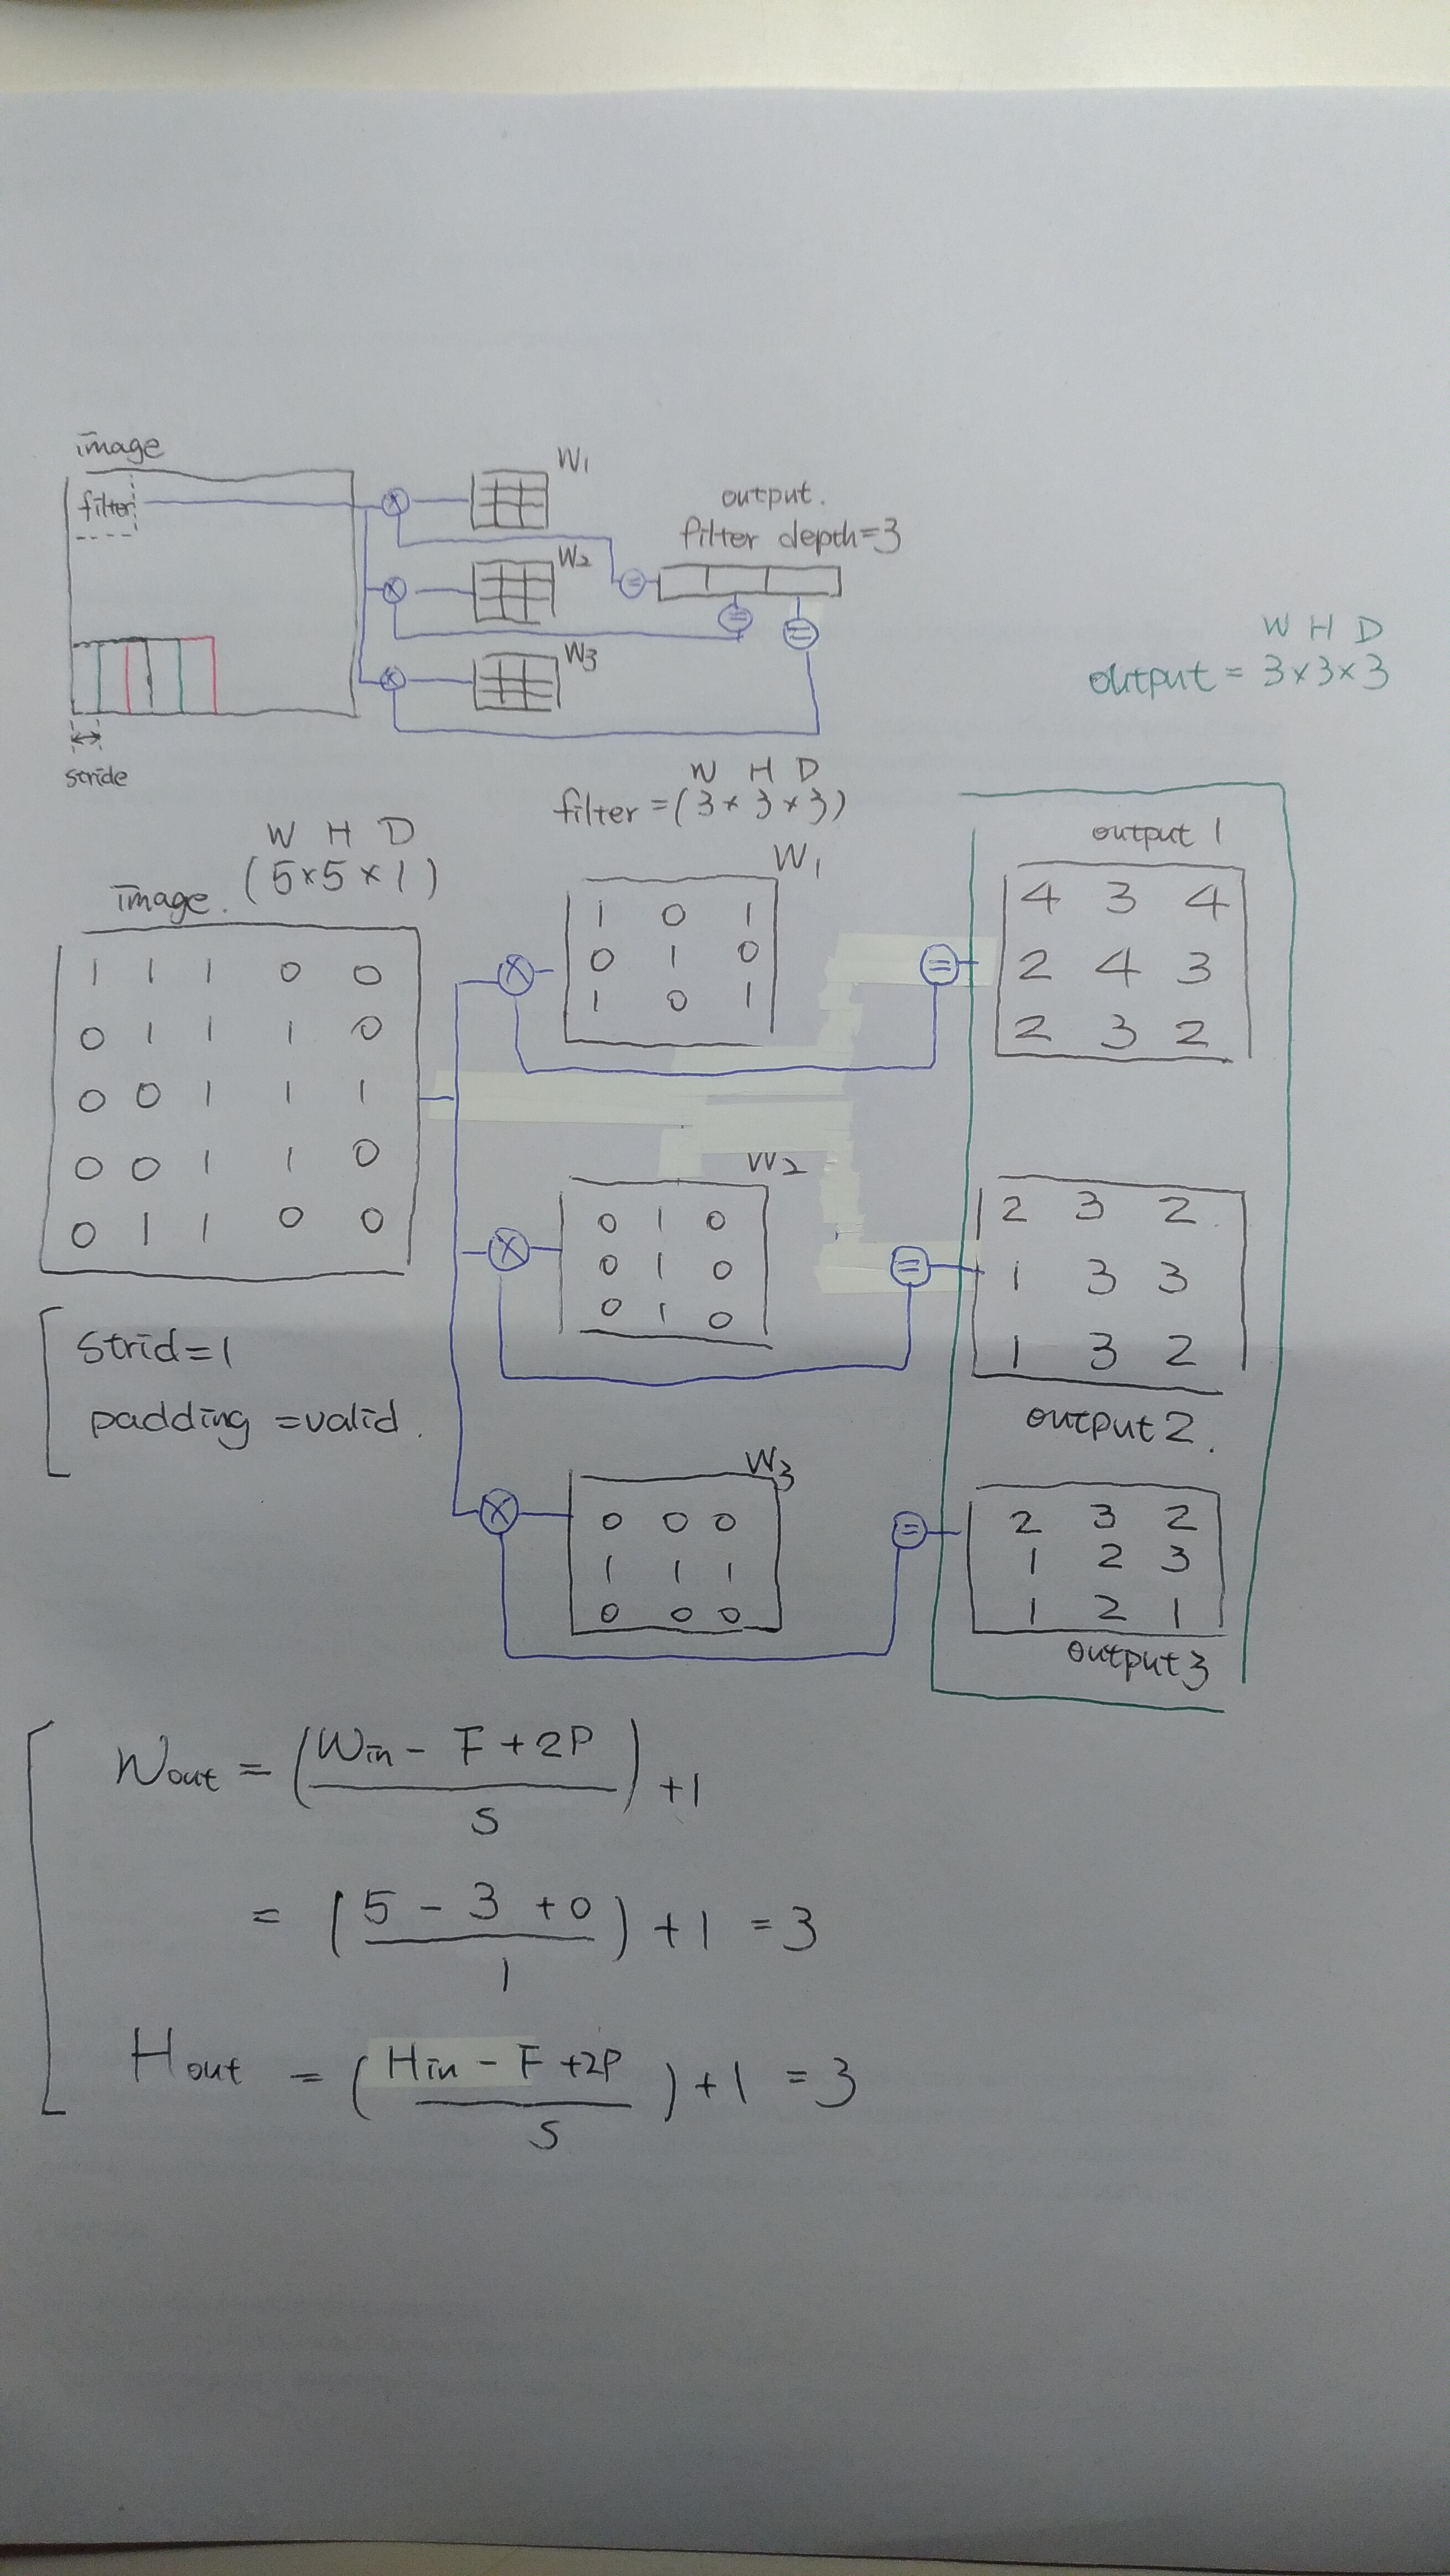 image
filter
W1
W2
W3
output.
filter depth=3
stride
W H D
output = 3×3×3
W H D
filter =(3×3×3)
W H D
image. (5×5×1)
1 1 1 0 0
0 1 1 1 0
0 0 1 1 1
0 0 1 1 0
0 1 1 0 0
Strid=1
padding =valid.
W1
1 0 1
0 1 0
1 0 1
W2
0 1 0
0 1 0
0 1 0
W3
0 0 0
1 1 1
0 0 0
output 1
4 3 4
2 4 3
2 3 2
2 3 2.
1 3 3
1 3 2
output 2.
2 3 2
1 2 3
1 2 1
output3
Wout = (Win - F+2P / S) +1
= (5 - 3 +0 / 1) +1 =3
Hout = (Hin - F +2P / S) +1 =3